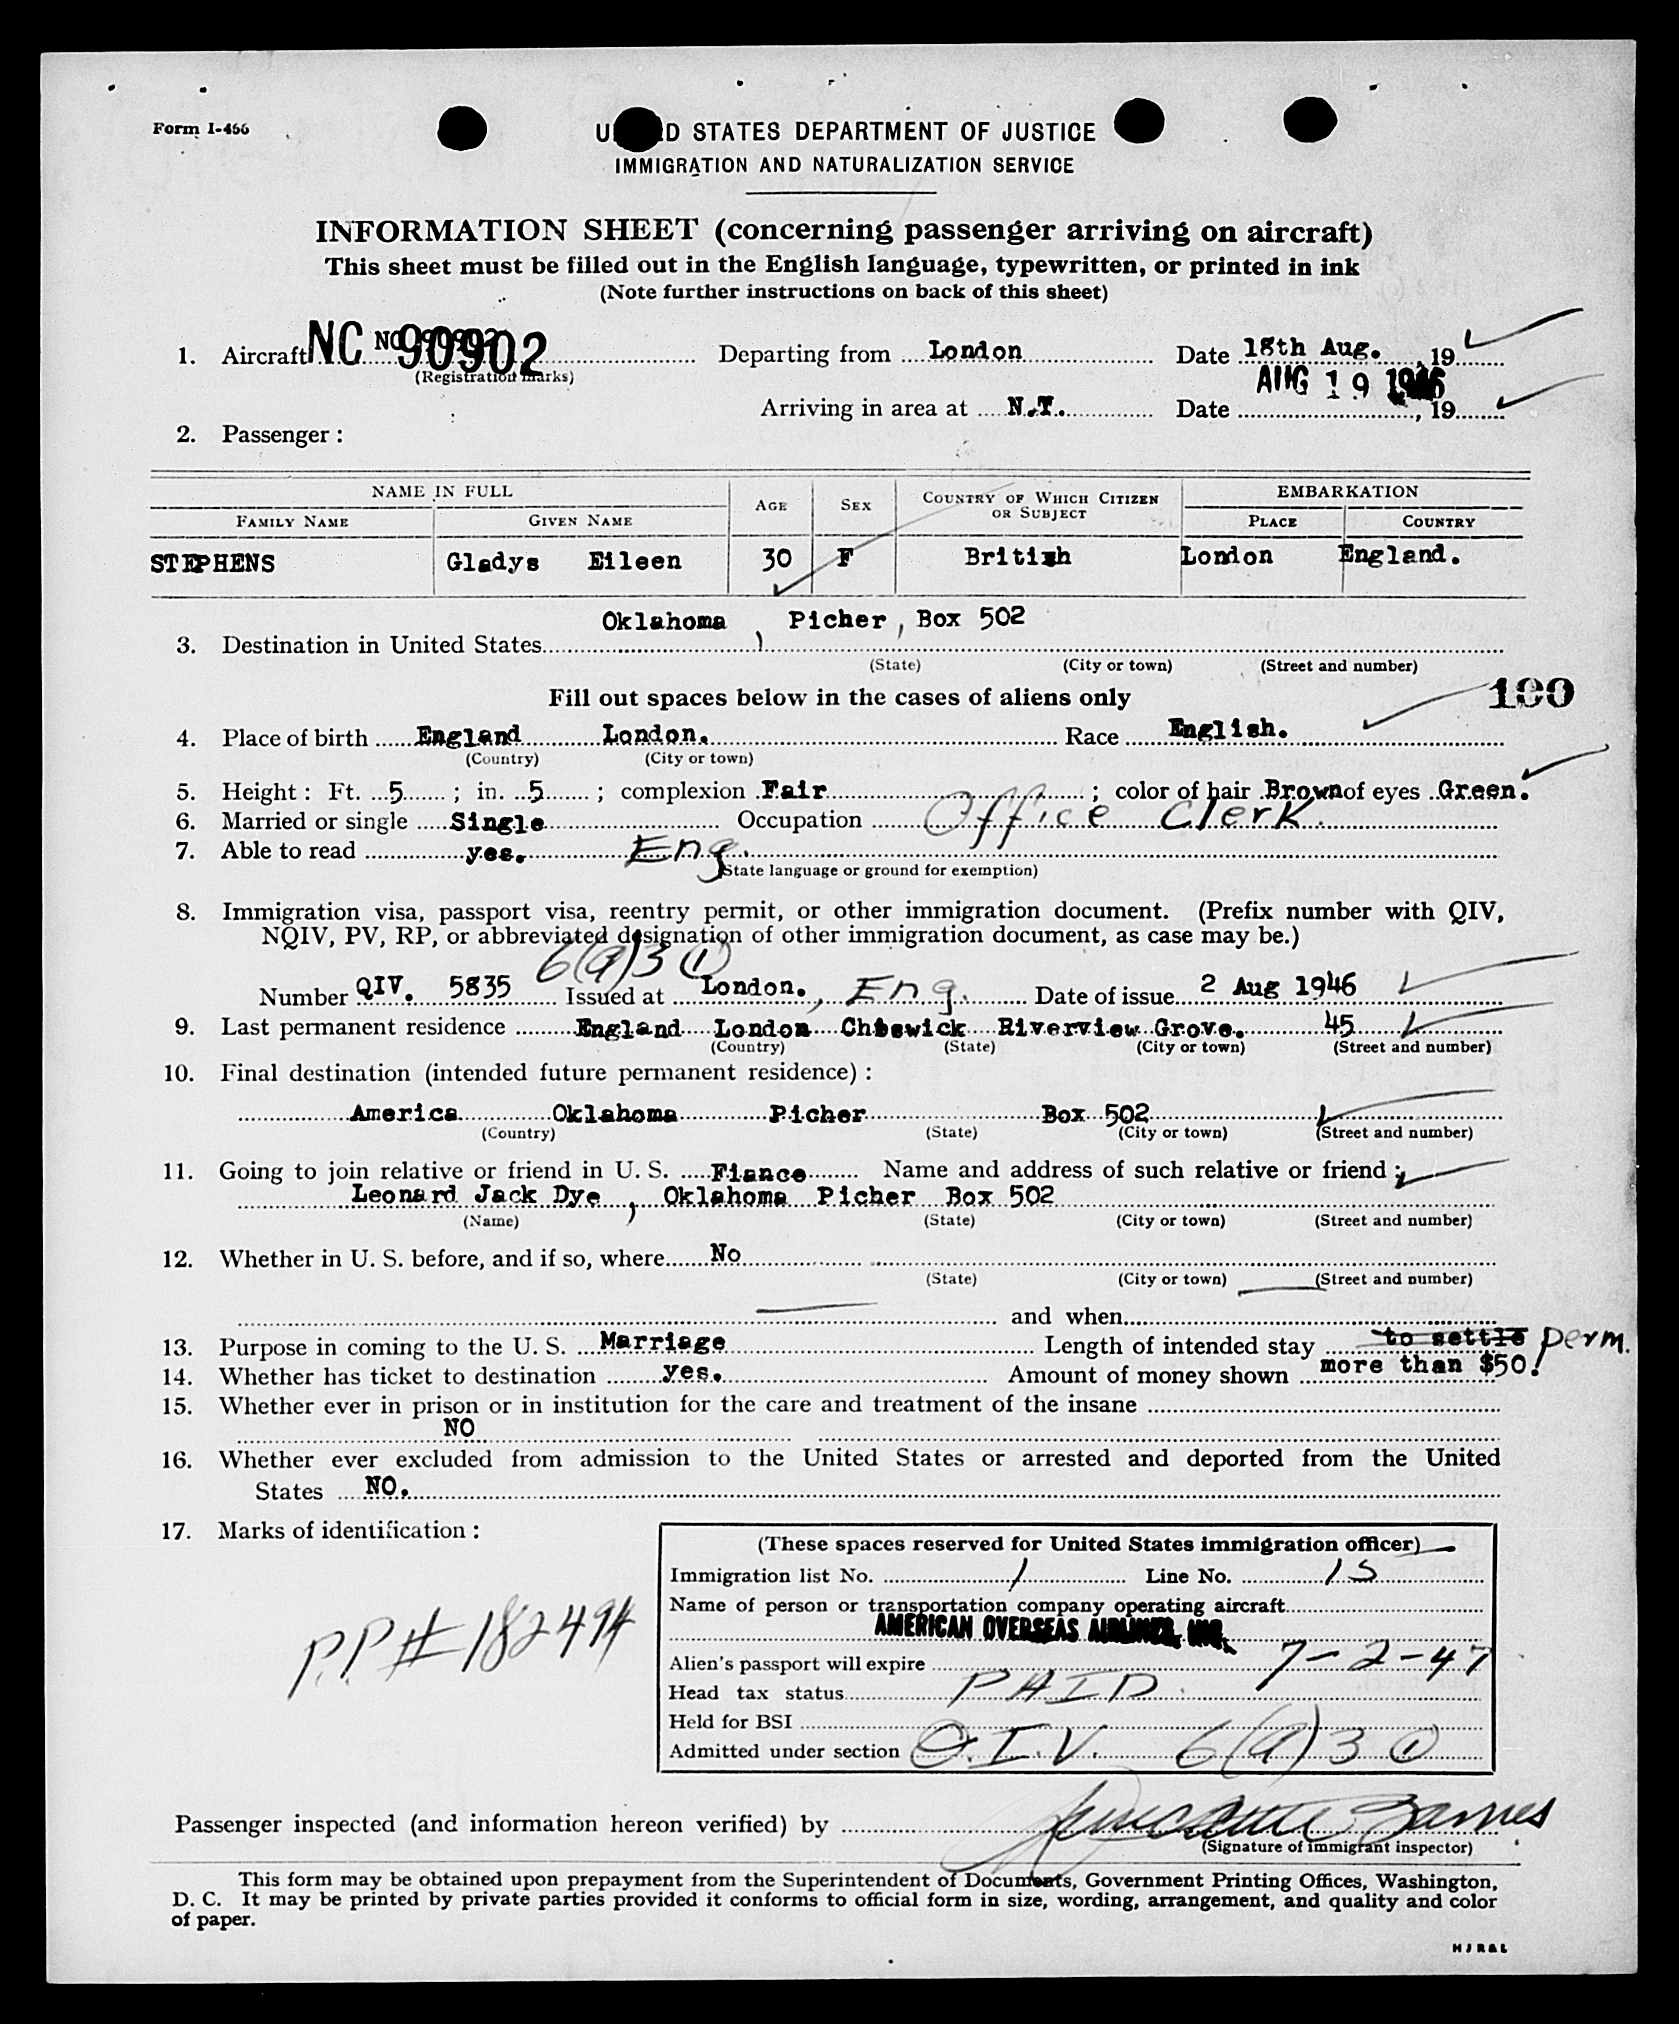 Form I-466
U D STATES DEPARTMENT OF JUSTICE
IMMIGRATION AND NATURALIZATION SERVICE
INFORMATION SHEET (concerning passenger arriving on aircraft)
This sheet must be filled out in the English language, typewritten, or printed in ink
(Note further instructions on back of this sheet)
1. Aircraft NC 90902 Departing from London Date 18th Aug. , 19
(Registration marks)
AUG 19 1946
Arriving in area at N.Y. Date , 19
2. Passenger :
NAME IN FULL AGE SEX COUNTRY OF WHICH CITIZEN OR SUBJECT EMBARKATION
FAMILY NAME GIVEN NAME PLACE COUNTRY
STEPHENS Gladys Eileen 30 F British London England.
Oklahoma , Picher , Box 502
3. Destination in United States
(State) (City or town) (Street and number)
Fill out spaces below in the cases of aliens only 100
4. Place of birth England London. Race English.
(Country) (City or town)
5. Height : Ft. 5 ; in. 5 ; complexion Fair ; color of hair Brown of eyes Green.
6. Married or single Single Occupation Office Clerk.
7. Able to read yes. Eng.
(State language or ground for exemption)
8. Immigration visa, passport visa, reentry permit, or other immigration document. (Prefix number with QIV,
NQIV, PV, RP, or abbreviated designation of other immigration document, as case may be.)
6(a)3 (1)
Number QIV. 5835 Issued at London. , Eng. Date of issue 2 Aug 1946
9. Last permanent residence England London Chiswick Riverview Grove. 45
(Country) (State) (City or town) (Street and number)
10. Final destination (intended future permanent residence) :
America Oklahoma Picher Box 502
(Country) (State) (City or town) (Street and number)
11. Going to join relative or friend in U. S. Fiance Name and address of such relative or friend :
Leonard Jack Dye , Oklahoma Picher Box 502
(Name) (State) (City or town) (Street and number)
12. Whether in U. S. before, and if so, where No
(State) (City or town) (Street and number)
and when
13. Purpose in coming to the U. S. Marriage Length of intended stay to settle perm.
14. Whether has ticket to destination yes. Amount of money shown more than $50!
15. Whether ever in prison or in institution for the care and treatment of the insane
NO
16. Whether ever excluded from admission to the United States or arrested and deported from the United
States NO.
17. Marks of identification :
P.P # 182494
(These spaces reserved for United States immigration officer)
Immigration list No. 1 Line No. 15
Name of person or transportation company operating aircraft
AMERICAN OVERSEAS AIRLINES, INC.
Alien's passport will expire 7-2-47
Head tax status PAID.
Held for BSI
Admitted under section Q.I.V. 6(a)3 (1)
Passenger inspected (and information hereon verified) by
(Signature of immigrant inspector)
This form may be obtained upon prepayment from the Superintendent of Documents, Government Printing Offices, Washington,
D. C. It may be printed by private parties provided it conforms to official form in size, wording, arrangement, and quality and color
of paper.
HJR&L